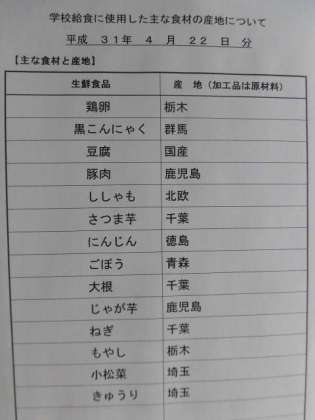 学校給食に使用した主な食材の産地について
平成 31年 4 月 22 日 分
【主な食材と産地】
生鮮食品 産 地（加工品は原材料）
鶏卵 栃木
黒こんにゃく 群馬
豆腐 国産
豚肉 鹿児島
ししゃも 北欧
さつま芋 千葉
にんじん 徳島
ごぼう 青森
大根 千葉
じゃが芋 鹿児島
ねぎ 千葉
もやし 栃木
小松菜 埼玉
きゅうり 埼玉